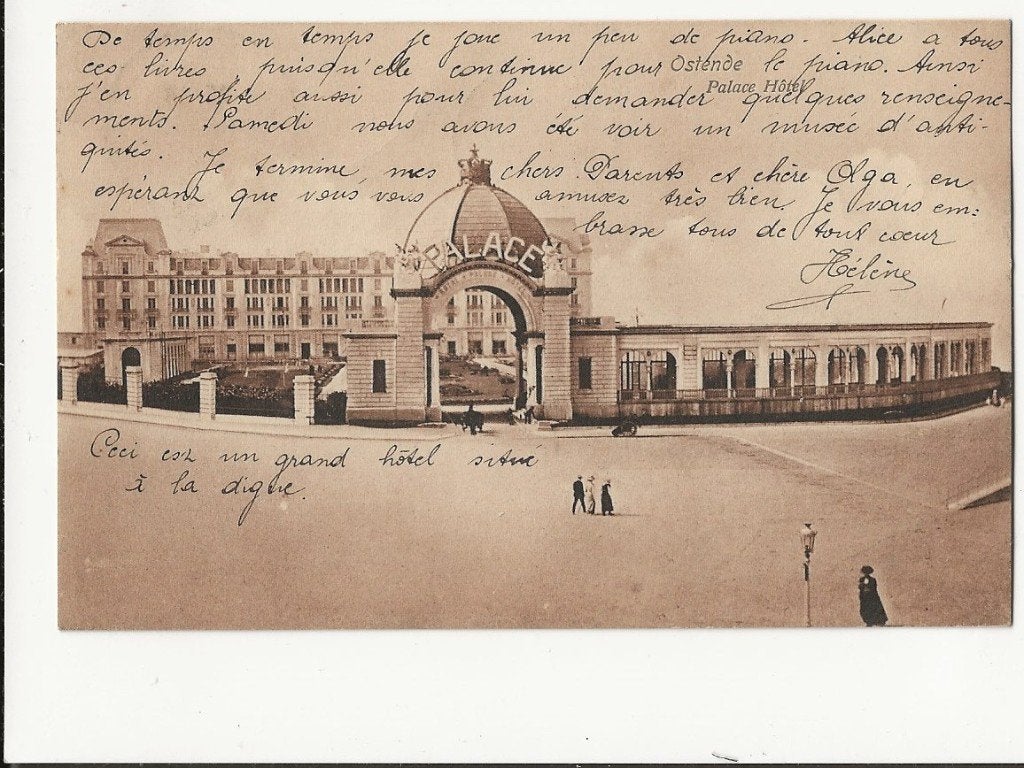 De temps en temps je joue un peu de piano. Alice a tous
ces livres, puisqu'elle continue pour le piano. Ainsi
Ostende
Palace Hôtel
j'en profite aussi pour lui demander quelques renseigne-
ments. Samedi nous avons été voir un musée d'anti-
quités.
Je termine, mes chers Parents et chère Olga, en
espérant que vous vous amusez très bien. Je vous em:
brasse tous de tout cœur
Hélène
PALACE
Ceci est un grand hôtel situé
à la digue.